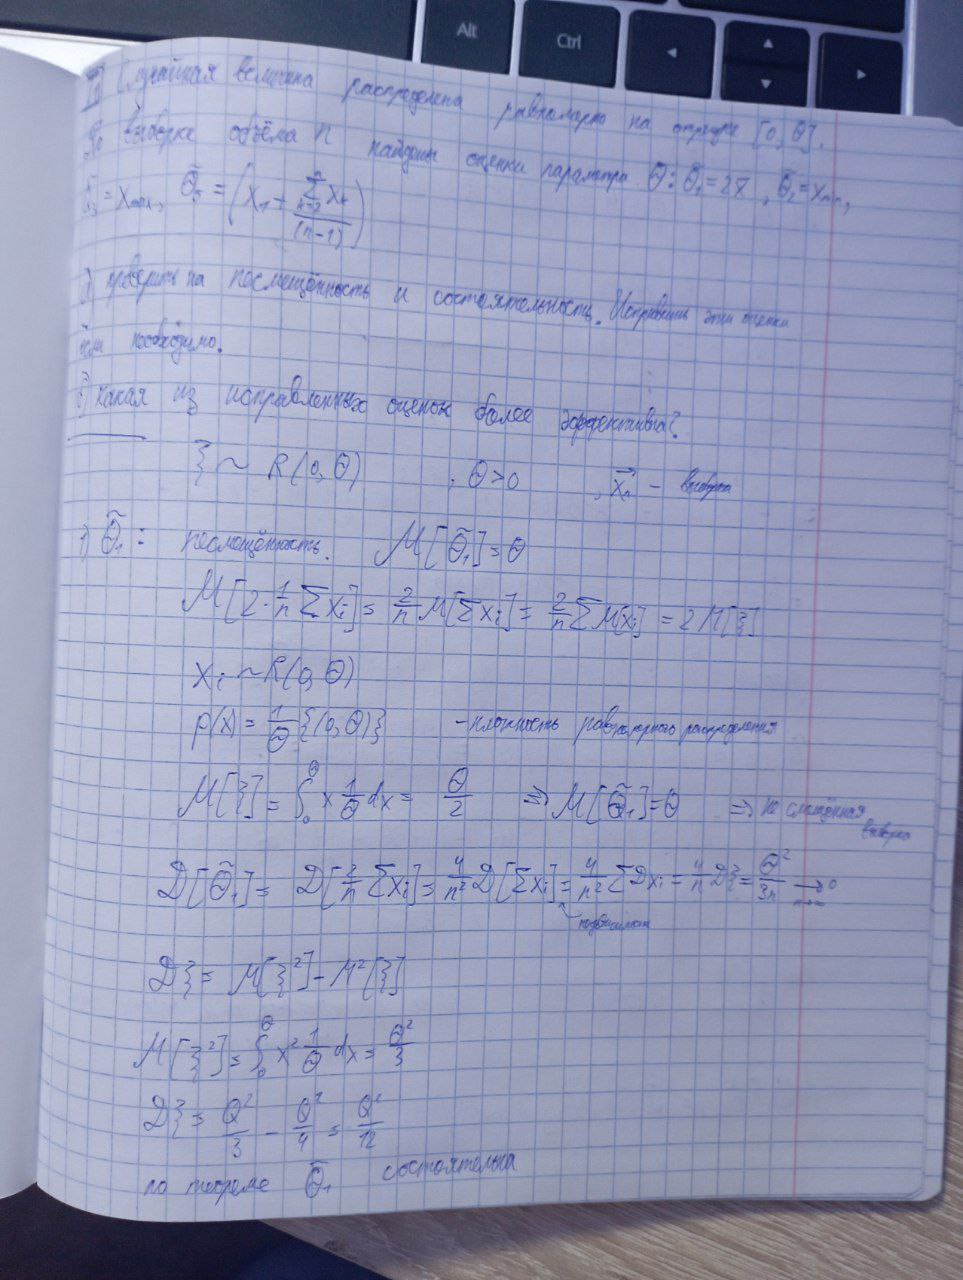 Alt
Ctrl
Случайная величина распределена равномерно на отрезке [0, Θ].
По выборке объёма n найдены оценки параметра Θ: Θ̃₁ = 2x̄, Θ̃₂ = xₘᵢₙ,
= xₘₐₓ, Θ̃₅ = (x₁ + Σ_{k=2}^{n} xₖ / (n-1))
проверить на несмещённость и состоятельность. Исправить эти оценки
если необходимо.
б) какая из исправленных оценок более эффективна?
ξ ~ R(0, Θ) , Θ > 0 , x⃗ₙ - выборка
1) Θ̃₁: несмещённость. M[Θ̃₁] = Θ
M[2·1/n Σxᵢ] = 2/n M[Σxᵢ] = 2/n ΣM[xᵢ] = 2M[ξ]
xᵢ ~ R(0, Θ)
p(x) = 1/Θ {(0, Θ)} - плотность равномерного распределения
M[ξ] = ∫₀^Θ x 1/Θ dx = Θ/2 ⇒ M[Θ̃₁] = Θ ⇒ не смещённая
выборка
D[Θ̃₁] = D[2/n Σxᵢ] = 4/n² D[Σxᵢ] = 4/n² ΣDxᵢ = 4/n Dξ = Θ²/3n → 0
n→∞
Dξ = M[ξ²] - M²[ξ]
M[ξ²] = ∫₀^Θ x² 1/Θ dx = Θ²/3
Dξ = Θ²/3 - Θ²/4 = Θ²/12
по теореме Θ̃₁ состоятельна